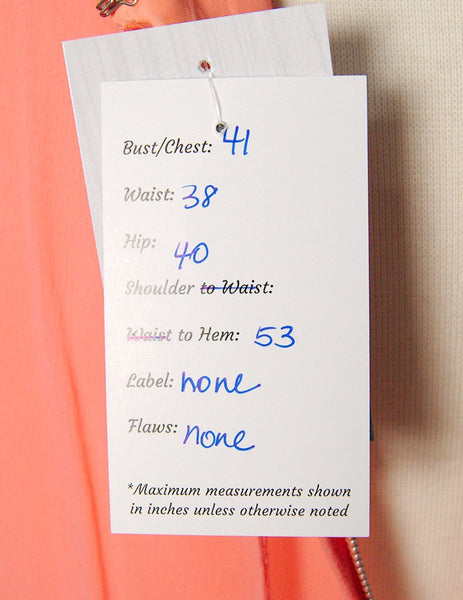 Bust/Chest: 41
Waist: 38
Hip: 40
Shoulder to Waist:
Waist to Hem: 53
Label: none
Flaws: none
*Maximum measurements shown
in inches unless otherwise noted